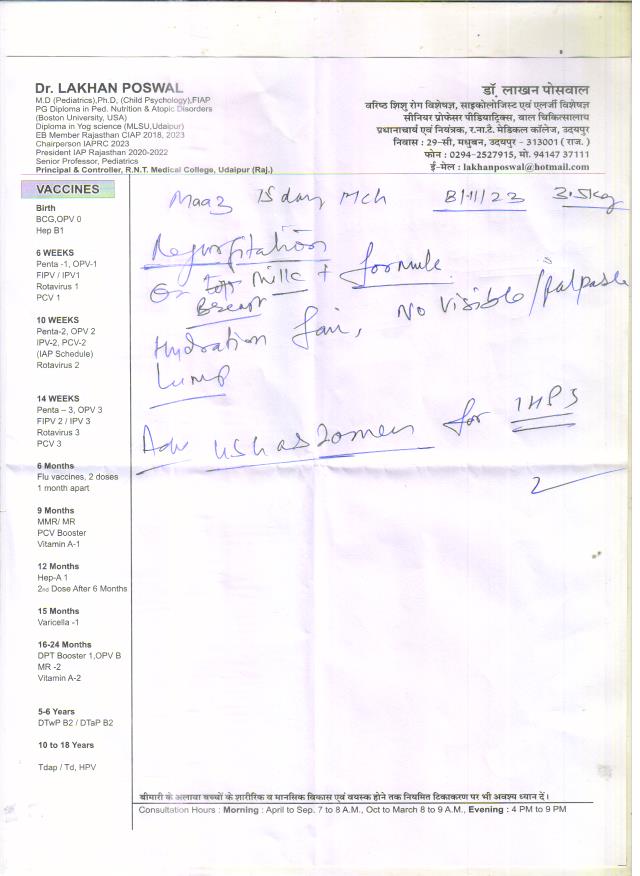 Dr. LAKHAN POSWAL
M.D (Pediatrics),Ph.D, (Child Psychology),FIAP
PG Diploma in Ped. Nutrition & Atopic Disorders
(Boston University, USA)
Diploma in Yog science (MLSU,Udaipur)
EB Member Rajasthan CIAP 2018, 2023
Chairperson IAPRC 2023
President IAP Rajasthan 2020-2022
Senior Professor, Pediatrics
Principal & Controller, R.N.T. Medical College, Udaipur (Raj.)
डॉ. लाखन पोसवाल
वरिष्ठ शिशु रोग विशेषज्ञ, साइकोलोजिस्ट एवं एलर्जी विशेषज्ञ
सीनियर प्रोफेसर पीडियाट्रिक्स, बाल चिकित्सालय
प्रधानाचार्य एवं नियंत्रक, र.ना.टै. मेडिकल कॉलेज, उदयपुर
निवास : 29-सी, मधुबन, उदयपुर - 313001 ( राज. )
फोन : 0294-2527915, मो. 94147 37111
ई-मेल : lakhanposwal@hotmail.com
VACCINES
Birth
BCG,OPV 0
Hep B1
6 WEEKS
Penta -1, OPV-1
FIPV / IPV1
Rotavirus 1
PCV 1
10 WEEKS
Penta-2, OPV 2
IPV-2, PCV-2
(IAP Schedule)
Rotavirus 2
14 WEEKS
Penta – 3, OPV 3
FIPV 2 / IPV 3
Rotavirus 3
PCV 3
6 Months
Flu vaccines, 2 doses
1 month apart
9 Months
MMR/ MR
PCV Booster
Vitamin A-1
12 Months
Hep-A 1
2nd Dose After 6 Months
15 Months
Varicella -1
16-24 Months
DPT Booster 1,OPV B
MR -2
Vitamin A-2
5-6 Years
DTwP B2 / DTaP B2
10 to 18 Years
Tdap / Td, HPV
Maaz 15 day Mch 8/11/23 3.5kg
Regurgitation
On Milk + formula
Breast
Hydration fair, No visible/palpable
Lump
Adv USG abdomen for IHPS
बीमारी के अलावा बच्चों के शारीरिक व मानसिक विकास एवं वयस्क होने तक नियमित टिकाकरण पर भी अवश्य ध्यान दें ।
Consultation Hours : Morning : April to Sep. 7 to 8 A.M., Oct to March 8 to 9 A.M., Evening : 4 PM to 9 PM